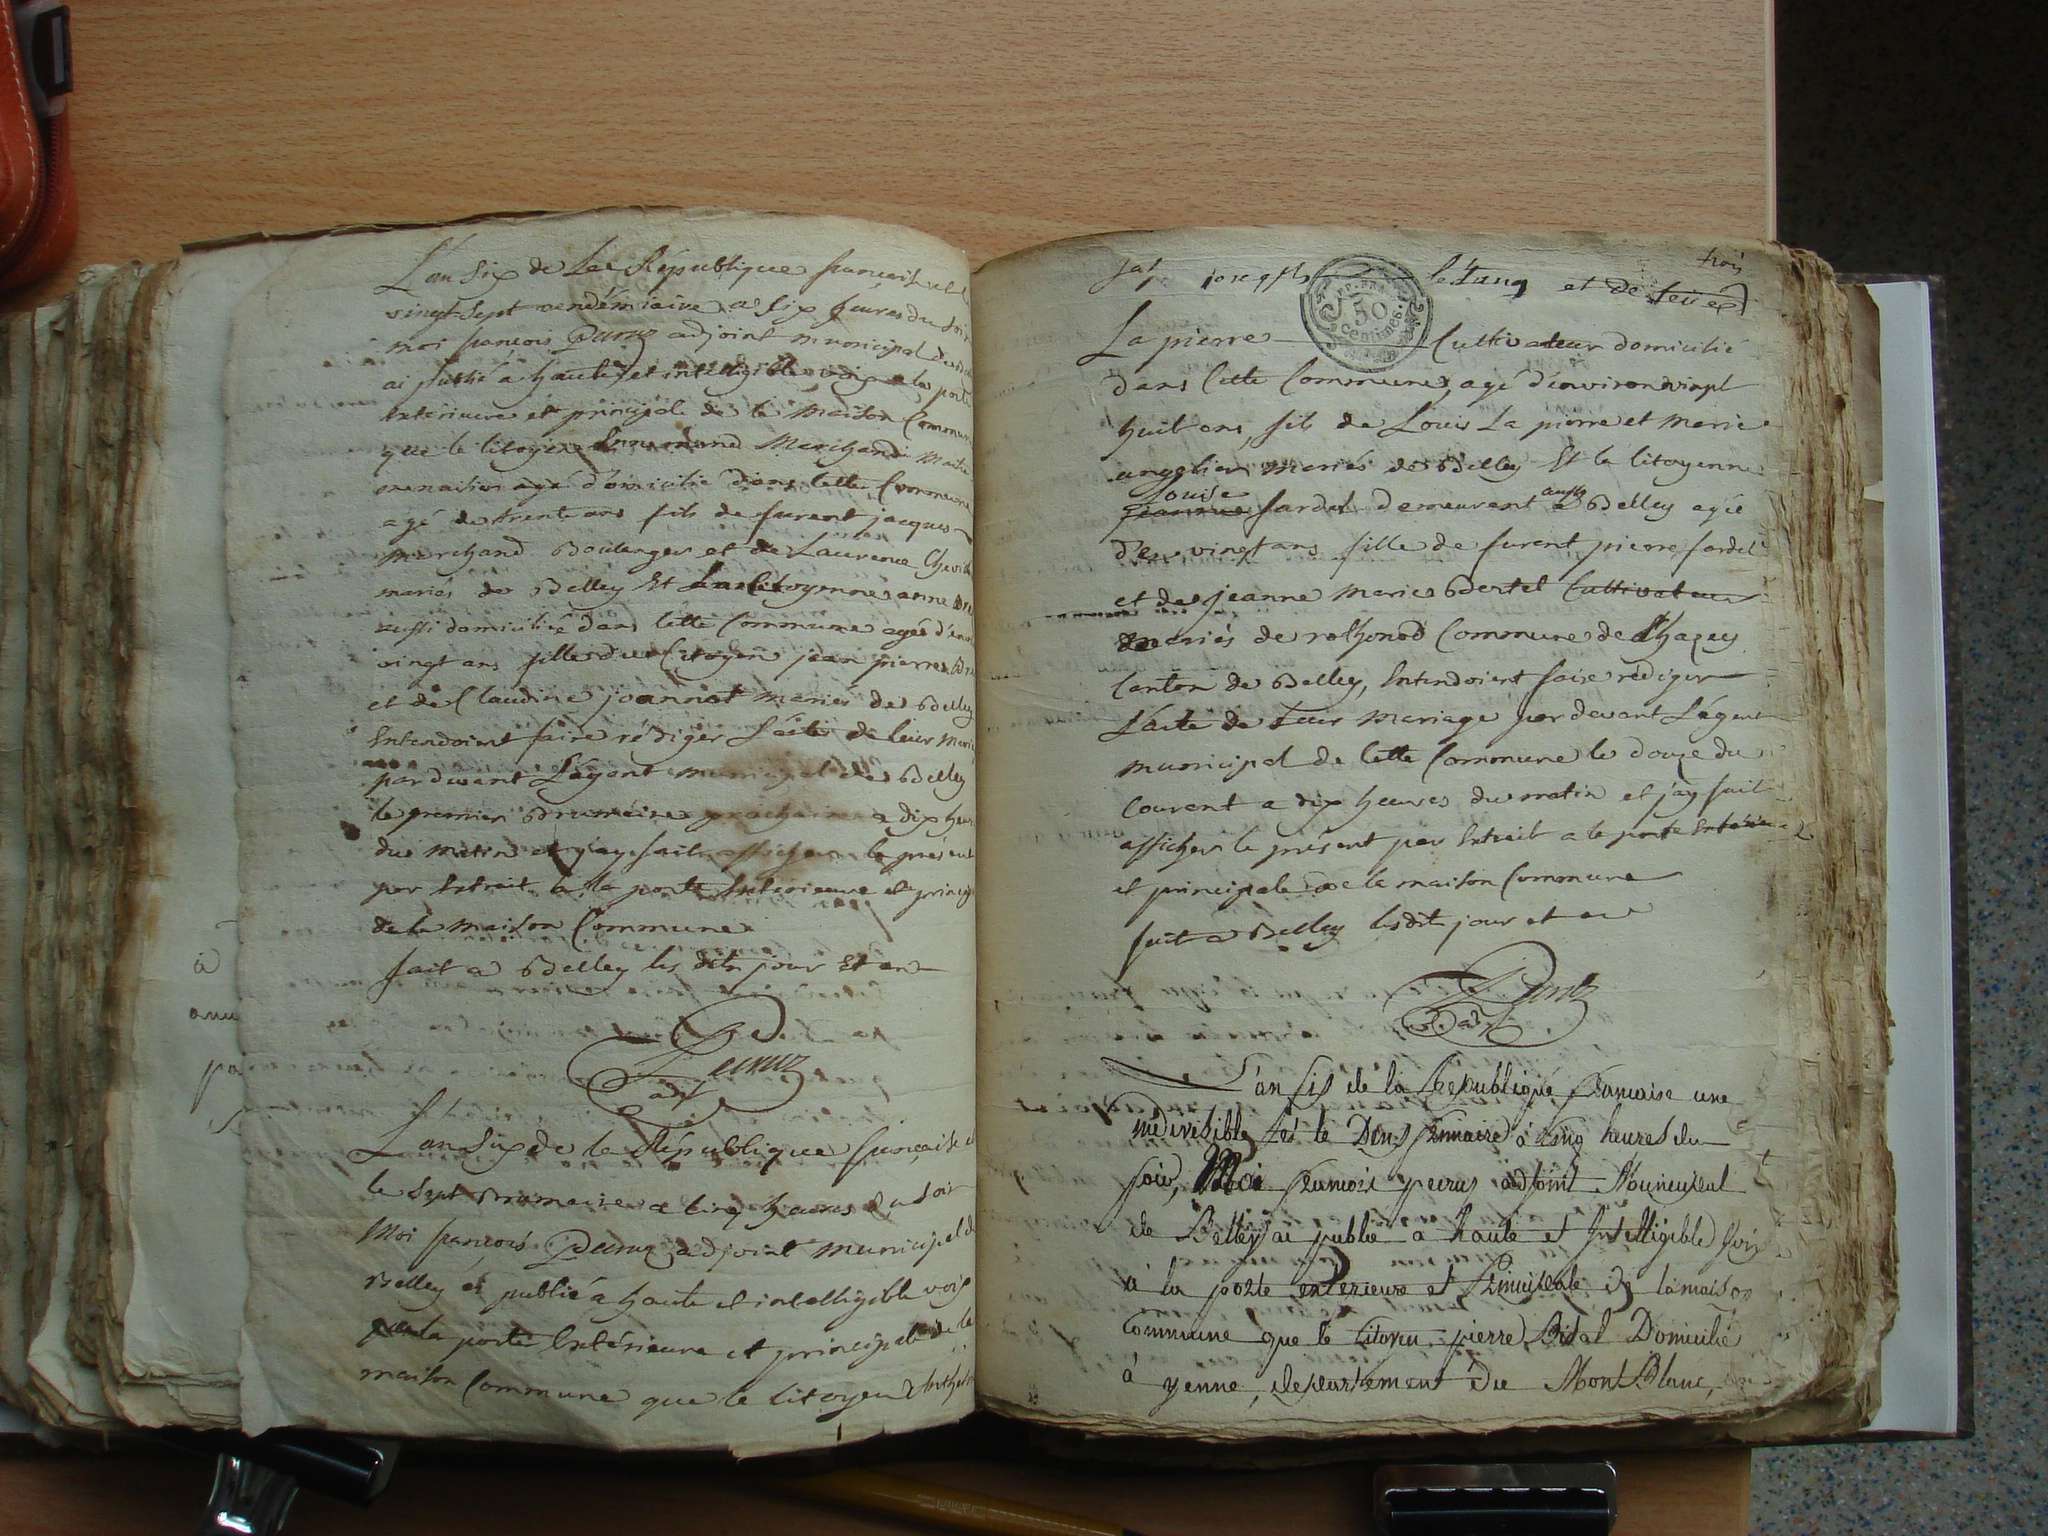 L'an Six de La République française et le
vingt sept vendémiaire a Six heures du soir
moi françois Peuruz adjoint municipal de
ai publié a haute et intelligible voix a la porte
Extérieure et principale de la maison Commune
que le Citoyen Ennemond Marchand Maitre
menuisier domicilié dans Cette Commune
agé de trente ans fils de furent jacques
Marchand Boulanger et de Laurence
mariés de Belley Et La Citoyenne anne
aussi domiciliée dans Cette Commune agée d'env
vingt ans fille du Citoyen jean pierre
et de Claudine joannot mariés de Belley
Entendoient faire rédiger L'acte de leur Mari
par devant L'agent municipal de Belley
le premier Brumaire prochain a dix heu
du matin et j'ay fait afficher le présent
par Extrait a la porte Extérieure et princip
de la maison Commune
fait a Belley les dits jour Et an
Peuruz
adjt
L'an Six de la République française et
le Sept Brumaire a Cinq heures du soir
Moi françois Peuruz adjoint municipal de
Belley ai publié a haute et intelligible voix
a la porte Extérieure et principale de la
maison Commune que le Citoyen Anthel
trois
joseph Letang et de
La pierre Cultivateur domicilié
dans Cette Commune, agé d'environ vingt
huit ans, fils de Louis La pierre et Marie
angelier mariés de Belley Et la Citoyenne
Louise
jeanne Sardel demeurant aussi a Belley agée
de vingt ans fille de furent pierre fardel
et de jeanne Marie Bertet Cultivateurs
mariés de rothonod Commune de Chazey
Canton de Belley, Entendoient faire rédiger
L'acte de Leur Mariage par devant L'agent
municipal de Cette Commune le douze du
Courant a dix heures du matin et j'ay fait
afficher le présent par Extrait a la porte Extérieure
et principale de la maison Commune
fait a Belley lesdit jour et an
Peuruz
adjt
L'an six de la République francaise une
indivisible et le Dix frimaire à Cinq heures du
soir, Moi francois peuruz adjoint Municipal
de Belley ai publié a haute et Intelligible voix
à la porte exterieure et Principale de la maison
Commune que le Citoyen pierre Bidal Domicilié
à yenne, departement du Mont Blanc,
50
Centimes